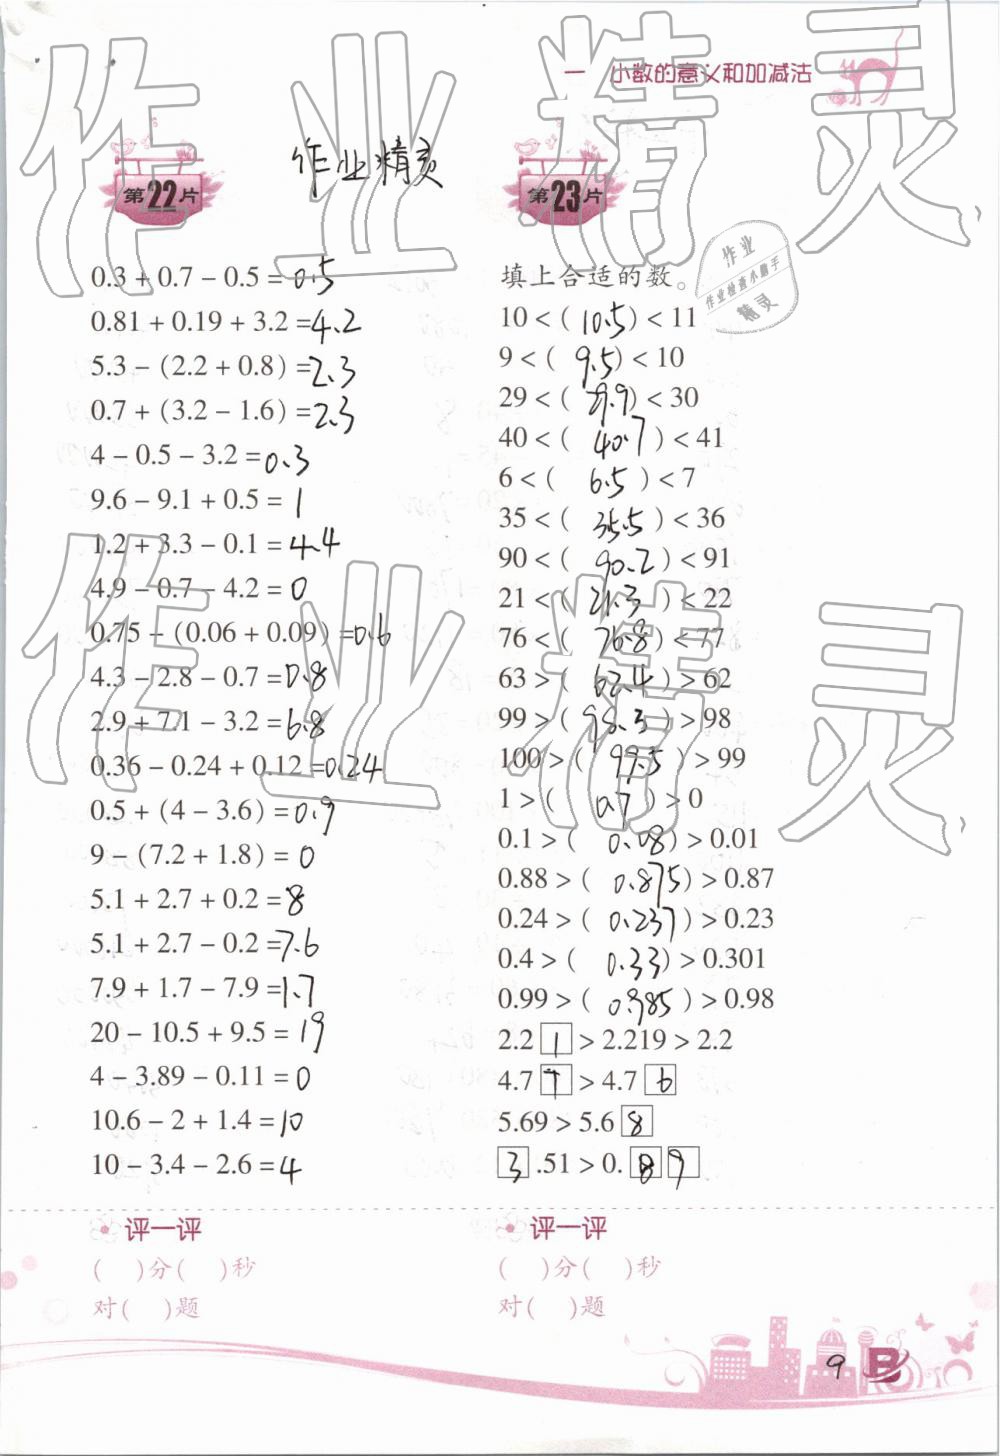 一 小数的意义和加减法
作业精灵
作业精灵
第22片
0.3 + 0.7 − 0.5 = 0.5
0.81 + 0.19 + 3.2 = 4.2
5.3 − (2.2 + 0.8) = 2.3
0.7 + (3.2 − 1.6) = 2.3
4 − 0.5 − 3.2 = 0.3
9.6 − 9.1 + 0.5 = 1
1.2 + 3.3 − 0.1 = 4.4
4.9 − 0.7 − 4.2 = 0
0.75 − (0.06 + 0.09) = 0.6
4.3 − 2.8 − 0.7 = 0.8
2.9 + 7.1 − 3.2 = 6.8
0.36 − 0.24 + 0.12 = 0.24
0.5 + (4 − 3.6) = 0.9
9 − (7.2 + 1.8) = 0
5.1 + 2.7 + 0.2 = 8
5.1 + 2.7 − 0.2 = 7.6
7.9 + 1.7 − 7.9 = 1.7
20 − 10.5 + 9.5 = 19
4 − 3.89 − 0.11 = 0
10.6 − 2 + 1.4 = 10
10 − 3.4 − 2.6 = 4
评一评
( )分( )秒
对( )题
第23片
作业
作业检查小助手
精灵
填上合适的数。
10 < ( 10.5 ) < 11
9 < ( 9.5 ) < 10
29 < ( 29.9 ) < 30
40 < ( 40.7 ) < 41
6 < ( 6.5 ) < 7
35 < ( 35.5 ) < 36
90 < ( 90.2 ) < 91
21 < ( 21.3 ) < 22
76 < ( 76.8 ) < 77
63 > ( 62.4 ) > 62
99 > ( 98.3 ) > 98
100 > ( 99.5 ) > 99
1 > ( 0.7 ) > 0
0.1 > ( 0.08 ) > 0.01
0.88 > ( 0.875 ) > 0.87
0.24 > ( 0.237 ) > 0.23
0.4 > ( 0.33 ) > 0.301
0.99 > ( 0.985 ) > 0.98
2.2 1 > 2.219 > 2.2
4.7 7 > 4.7 6
5.69 > 5.6 8
3 .51 > 0. 8 9
评一评
( )分( )秒
对( )题
作业精灵
9
B